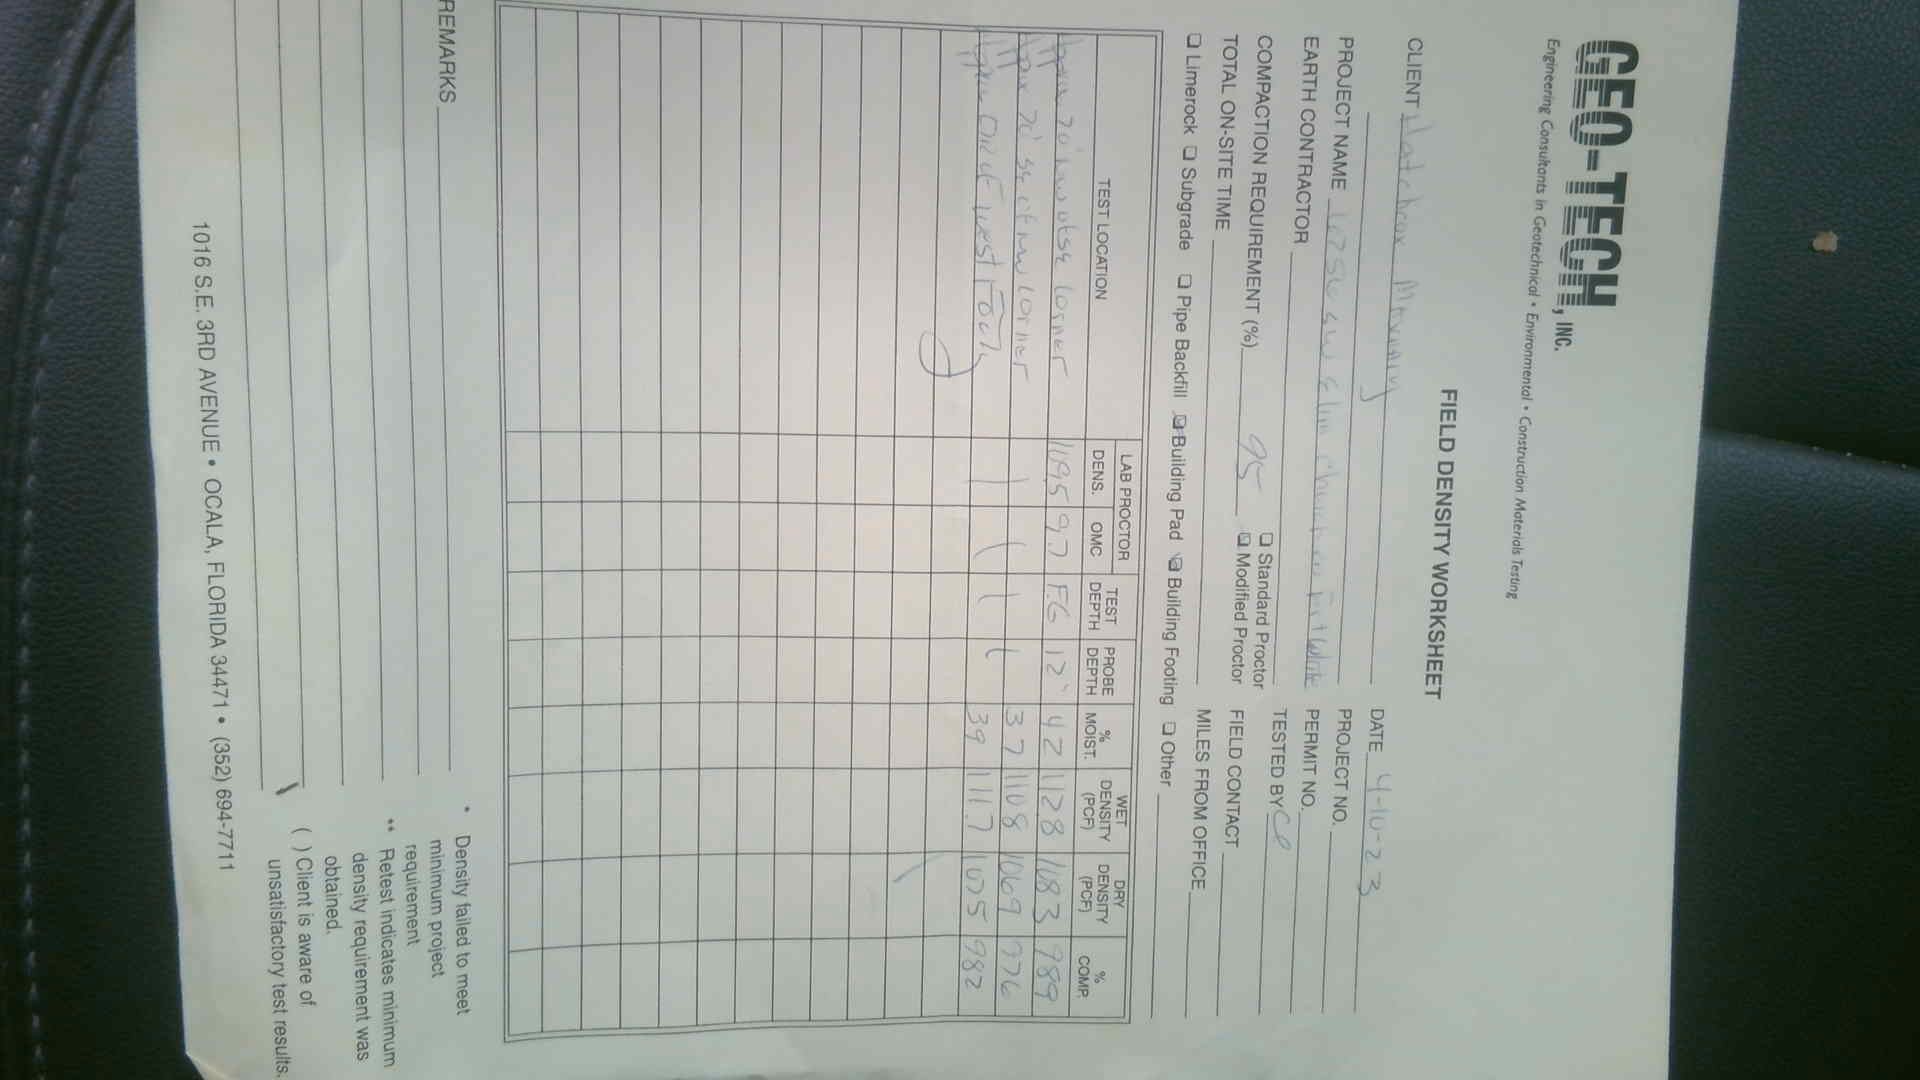 GEO-TECH, INC.
Engineering Consultants in Geotechnical • Environmental • Construction Materials Testing
FIELD DENSITY WORKSHEET
CLIENT
DATE 4-10-23
PROJECT NAME
PROJECT NO.
EARTH CONTRACTOR
PERMIT NO.
COMPACTION REQUIREMENT (%) 95 ❑ Standard Proctor ❑ Modified Proctor
TESTED BY CP
TOTAL ON-SITE TIME
FIELD CONTACT
MILES FROM OFFICE
❑ Limerock ❑ Subgrade ❑ Pipe Backfill ❑ Building Pad ❑ Building Footing ❑ Other
TEST LOCATION LAB PROCTOR DENS. OMC TEST DEPTH PROBE DEPTH % MOIST. WET DENSITY (PCF) DRY DENSITY (PCF) % COMP.
70' nw of se corner 1095 97 F.G 12" 42 1128 1083 989
70' se of nw corner 37 1108 1069 976
west 39 111.7 1075 982
REMARKS
* Density failed to meet
minimum project
requirement
** Retest indicates minimum
density requirement was
obtained.
( ) Client is aware of
unsatisfactory test results.
1016 S.E. 3RD AVENUE • OCALA, FLORIDA 34471 • (352) 694-7711